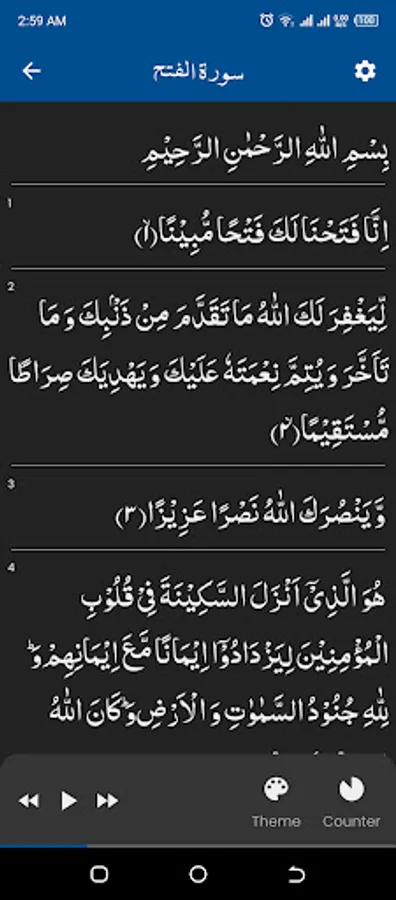 2:59 AM
سورة الفتح
بِسْمِ اللّٰهِ الرَّحْمٰنِ الرَّحِيْمِ
1
اِنَّا فَتَحْنَا لَكَ فَتْحًا مُّبِيْنًا(۱)
2
لِّيَغْفِرَ لَكَ اللّٰهُ مَا تَقَدَّمَ مِنْ ذَنْۢبِكَ وَ مَا
تَاَخَّرَ وَ يُتِمَّ نِعْمَتَهٗ عَلَيْكَ وَ يَهْدِيَكَ صِرَاطًا
مُّسْتَقِيْمًا(۲)
3
وَّ يَنْصُرَكَ اللّٰهُ نَصْرًا عَزِيْزًا(۳)
4
هُوَ الَّذِيْۤ اَنْزَلَ السَّكِيْنَةَ فِيْ قُلُوْبِ
الْمُؤْمِنِيْنَ لِيَزْدَادُوْۤا اِيْمَانًا مَّعَ اِيْمَانِهِمْؕ-وَ
لِلّٰهِ جُنُوْدُ السَّمٰوٰتِ وَ الْاَرْضِؕ-وَ كَانَ اللّٰهُ
Theme
Counter